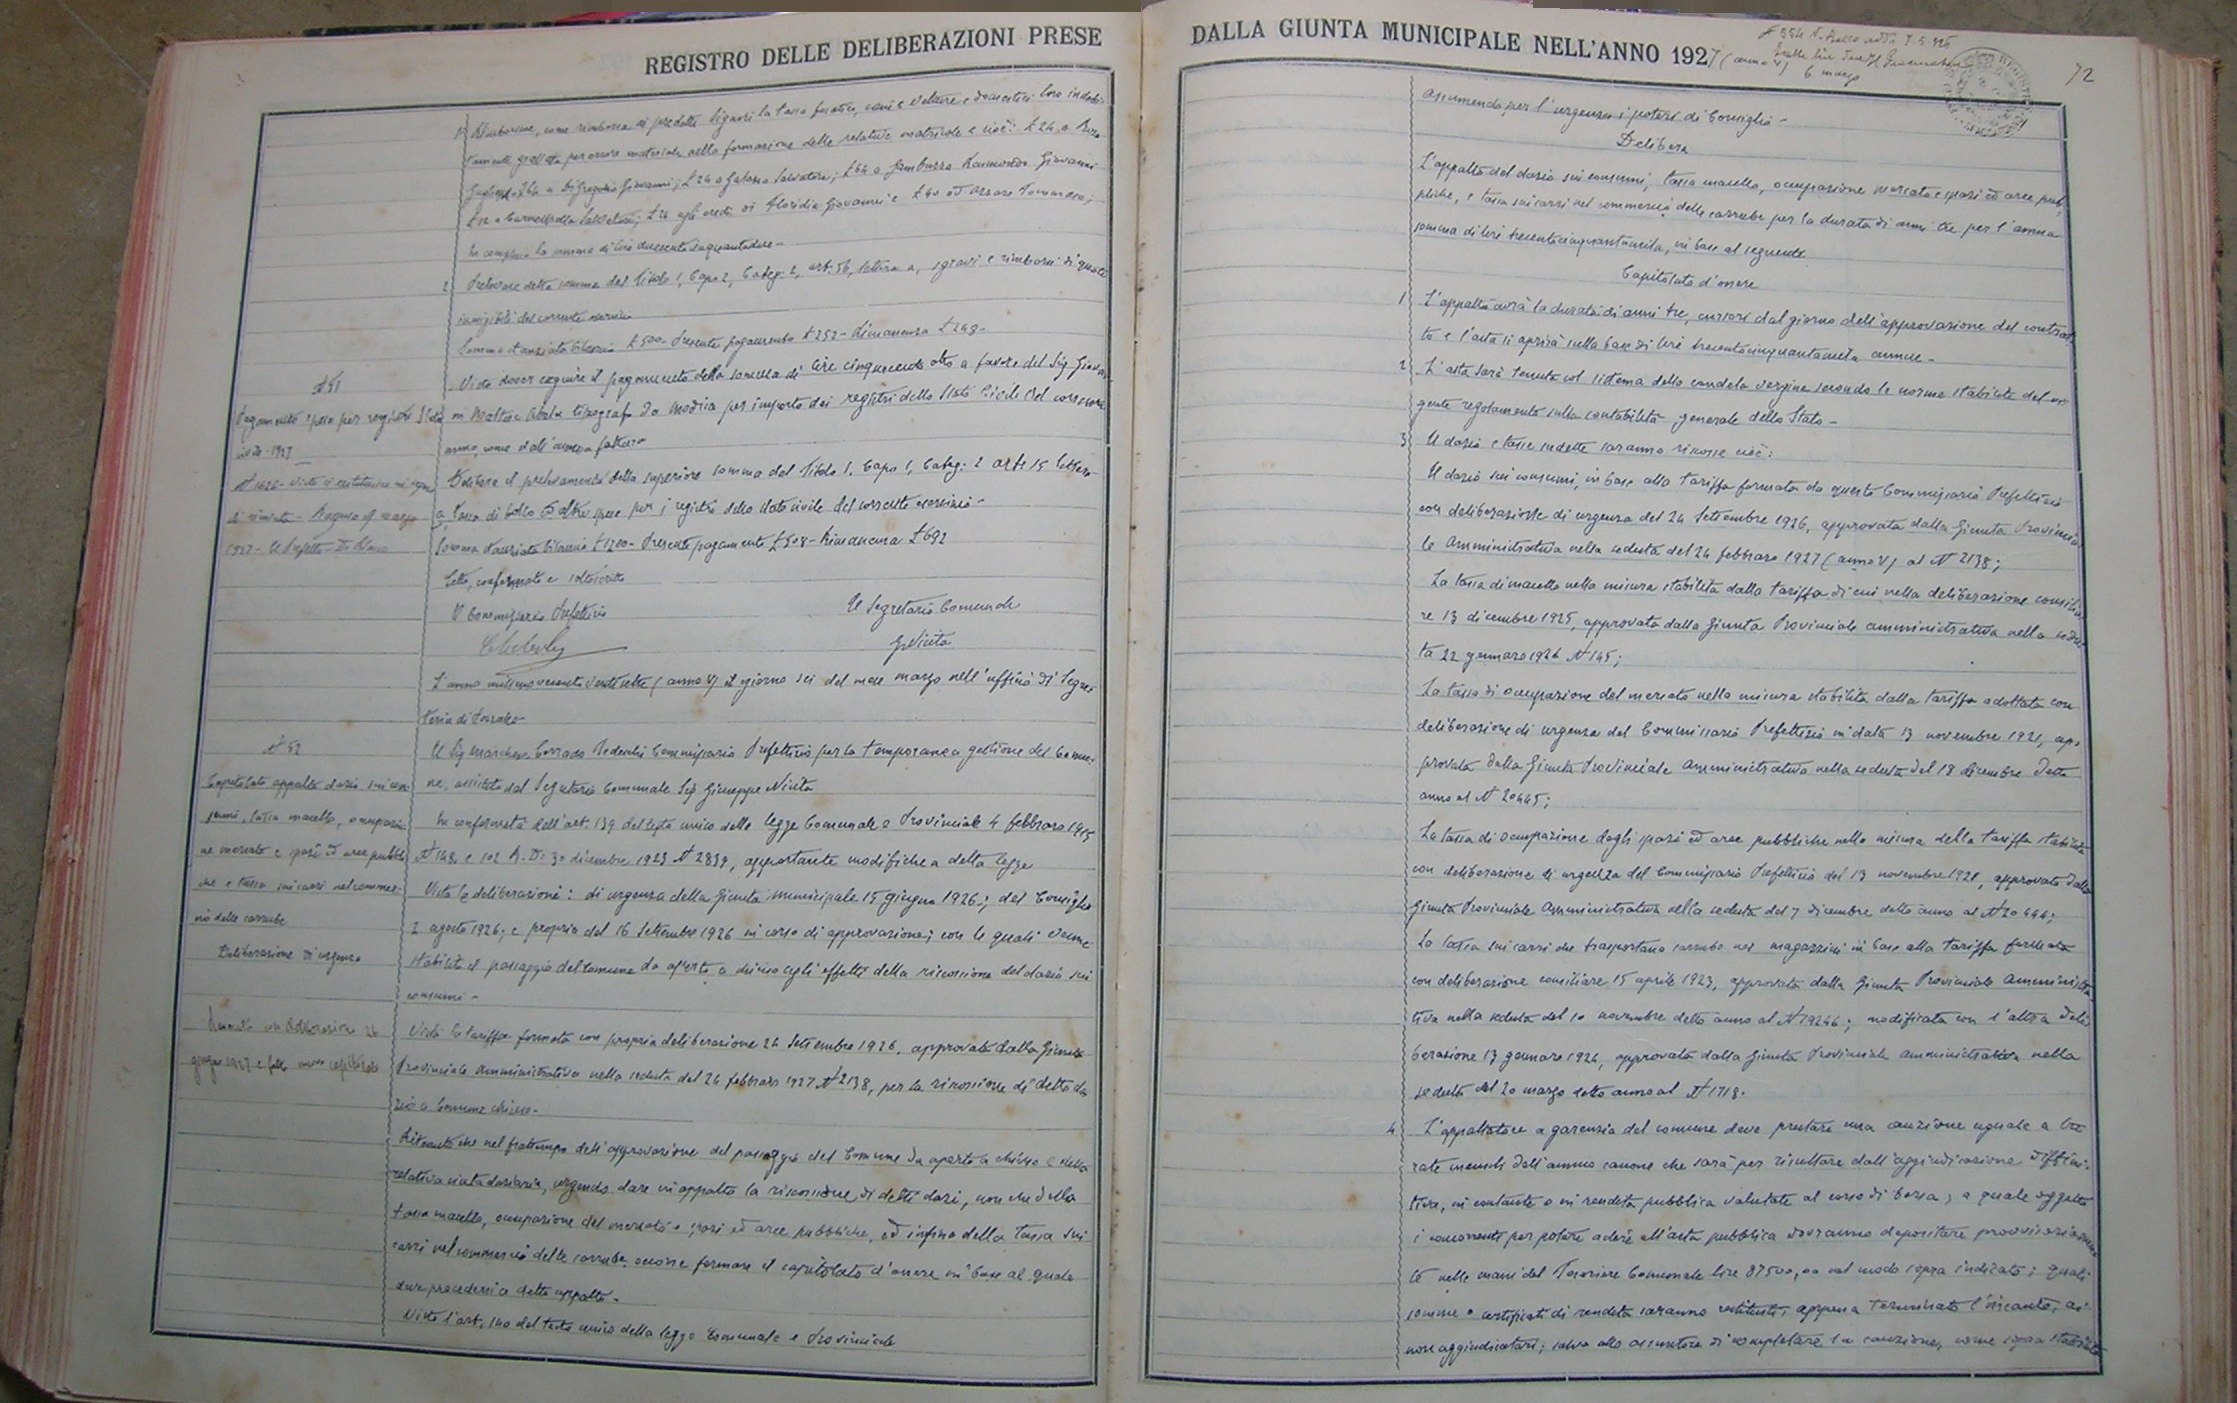 REGISTRO DELLE DELIBERAZIONI PRESE
1° Rimborsare, come rimborsa ai predetti Signori la tassa
tamente per errore materiale nella formazione delle relative matricole e cioè: £ 24 a
a Di Gregorio Giovanni; £ 24 a Salvatore; £ 64 a Raimondo Giovanni
£ 12 a Salvatore; £ 24 agli eredi di Floridia Giovanni e £ 40 ad Azzaro Tommaso;
In complesso la somma di lire duecentocinquantadue -
2 Prelevare detta somma dal Titolo 1, Capo 2, Categ: 2, art. 56, lettera a, sgravi e rimborsi di quote
inesigibili del corrente esercizio
Somma stanziata bilancio £ 500 - Presente pagamento £ 252 - Rimanenza £ 248 -
N 51
Pagamento spesa per registri Stato
civile - 1927
Visto dover eseguire il pagamento della somma di lire cinquecento otto a favore del Sig Giovan-
ni tipografo da Modica per importo dei registri dello Stato Civile del corrente
anno, come dall'annessa fattura
Delibera il prelevamento della superiore somma dal Titolo 1, Capo 1, Categ: 2 arte 15 lettera
a, tassa di bollo ed altre spese per i registri dello stato civile del corrente esercizio -
Somma stanziata bilancio £ 1200 - Presente pagamento £ 508 - Rimanenza £ 692
Letto, confermato e sottoscritto
Il Commissario Prefettizio
Il Segretario Comunale
L'anno millenovecentoventisette (anno V) il giorno sei del mese marzo nell'ufficio di Segre-
teria di
N 52
Capitolato appalto dazio sui con-
sumi, tassa macello, occupazio-
ne mercato e spazi ed aree pubbli-
che e tassa sui carri nel commer-
cio delle carrube
Deliberazione di urgenza
Il Sig Marchese Corrado Commissario Prefettizio per la temporanea gestione del Comu-
ne, assistito dal Segretario Comunale Sig Giuseppe
In conformità dell'art. 139 del testo unico della legge Comunale e Provinciale 4 febbraro 1915
N 148 e 102 R. D. 30 dicembre 1923 N 2839, apportante modifiche a detta legge
Viste le deliberazioni: di urgenza della Giunta Municipale 15 giugno 1926; del Consiglio
2 agosto 1926; e propria del 16 Settembre 1926 in corso di approvazione; con le quali venne
stabilito il passaggio del Comune da aperto a chiuso agli effetti della riscossione del dazio sui
consumi -
Vista la tariffa formata con propria deliberazione 24 Settembre 1926, approvata dalla Giunta
Provinciale Amministrativa nella seduta del 24 febbraro 1927 N 2138, per la riscossione di detto da-
zio a Comune chiuso -
Ritenuto che nel frattempo dell'approvazione del passaggio del Comune da aperto a chiuso e della
relativa daziaria, urgendo dare in appalto la riscossione di detti dazi, non che della
tassa macello, occupazione del mercato e spazi ed aree pubbliche, ed infine della tassa sui
carri nel commercio delle carrube, occorre formare il capitolato d'onere in base al quale
deve procedersi a detto appalto -
Visto l'art. 140 del testo unico della legge Comunale e Provinciale
DALLA GIUNTA MUNICIPALE NELL'ANNO 1927 (anno V)
6 marzo
72
assumendo per l'urgenza i poteri di Consiglio -
Delibera
L'appalto del dazio sui consumi, tassa macello, occupazione mercato e spazi ed aree pub-
bliche, e tassa sui carri nel commercio delle carrube per la durata di anni tre per l'annua
somma di lire trecentocinquantamila, in base al seguente
Capitolato d'onere
1 L'appalto avrà la durata di anni tre, cursori dal giorno dell'approvazione del contrat-
to e l'asta si aprirà sulla base di lire trecentocinquantamila annue -
2 L'asta sarà tenuta col sistema della candela vergine secondo le norme stabilite dal vi-
gente regolamento sulla contabilità generale dello Stato -
3 Il dazio e tasse sudette saranno riscosse cioè:
Il dazio sui consumi, in base alla tariffa formata da questo Commissario Prefettizio
con deliberazione di urgenza del 24 Settembre 1926, approvata dalla Giunta Provincia-
le Amministrativa nella seduta del 24 febbraro 1927 (anno V) al N 2138;
La tassa di macello nella misura stabilita dalla tariffa di cui nella deliberazione consilia-
re 13 dicembre 1925, approvata dalla Giunta Provinciale amministrativa nella sedu-
ta 22 gennaro 1926 N 145;
La tassa di occupazione del mercato nella misura stabilita dalla tariffa adottata con
deliberazione di urgenza del Commissario Prefettizio in data 13 novembre 1921, ap-
provata dalla Giunta Provinciale Amministrativa nella seduta del 18 dicembre detto
anno al N 20445;
La tassa di occupazione degli spazi ed aree pubbliche nella misura della tariffa stabilita
con deliberazione di urgenza del Commissario Prefettizio del 13 novembre 1921, approvata dalla
Giunta Provinciale Amministrativa nella seduta del 7 dicembre detto anno al N 20444;
La tassa sui carri che trasportano carrube nei magazzini in base alla tariffa formata
con deliberazione consiliare 15 aprile 1923, approvata dalla Giunta Provinciale Amministra-
tiva nella seduta del 10 novembre detto anno al N 19246; modificata con l'altra deli-
berazione 13 gennaro 1924, approvata dalla Giunta Provinciale Amministrativa nella
seduta del 20 marzo detto anno al N 1718.
4 L'appaltatore a garenzia del comune deve prestare una cauzione uguale a tre
rate mensili dell'annuo canone che sarà per risultare dall'aggiudicazione diffini-
tiva, in contante o in rendita pubblica valutata al corso di borsa; a quale oggetto
i concorrenti per potere adire all'asta pubblica dovranno depositare provvisoriamen-
te nelle mani del Tesoriere Comunale lire 87500,00 nel modo sopra indicato; quali
somme o certificati di rendita saranno restituiti, appena terminato l'incanto, ai
non aggiudicatari; salvo allo assuntore di completare la cauzione, come sopra stabilito